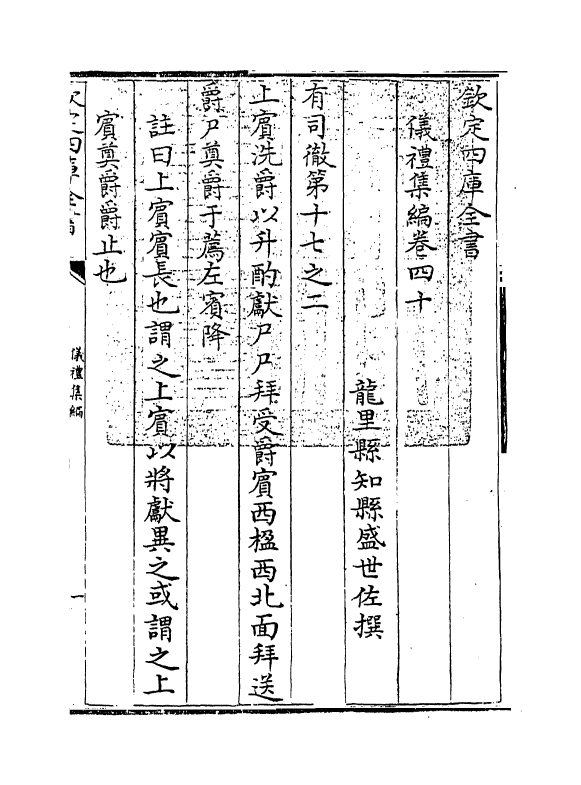 欽定四庫全書
儀禮集編卷四十
龍里縣知縣盛世佐撰
有司徹第十七之二
上賓洗爵以升酌獻尸尸拜受爵賓西楹西北面拜送
爵尸奠爵于薦左賓降
註曰上賓賓長也謂之上賓以將獻異之或謂之上
賓奠爵爵止也
欽定四庫全書
儀禮集編
一